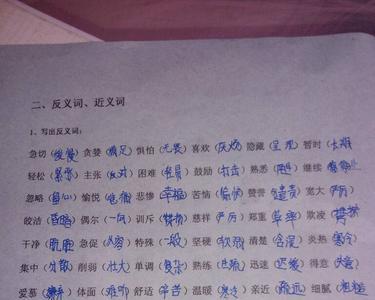 二、反义词、近义词
1、写出反义词：
急切（缓慢）贪婪（满足）惧怕（无畏）喜欢（厌恶）隐藏（呈现）暂时（长期）
轻松（）主张（反对）困难（容易）鼓励（打击）熟悉（陌生）继续（）
忽略（留心）愉悦（）悲惨（幸福）苦恼（愉快）赞誉（谴责）宽大（严厉）
皎洁（昏暗）偶尔（一向）训斥（赞扬）慈祥（严厉）郑重（草率）欺凌（）
干净（肮脏）急促（从容）特殊（一般）坚硬（软弱）清楚（含混）炎热（寒冷）
集中（分散）削弱（壮大）单调（复杂）熟练（生疏）迅速（迟缓）得意（失意）
爱慕（嫌弃）体面（难听）舒适（辛苦）温暖（寒冷）亲近（疏远）细腻（粗糙）